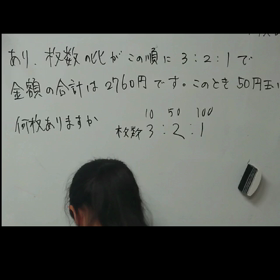 あり、枚数の比がこの順に3:2:1で
金額の合計は2760円です。このとき50円玉は
何枚ありますか
10 50 100
枚数 3:2:1